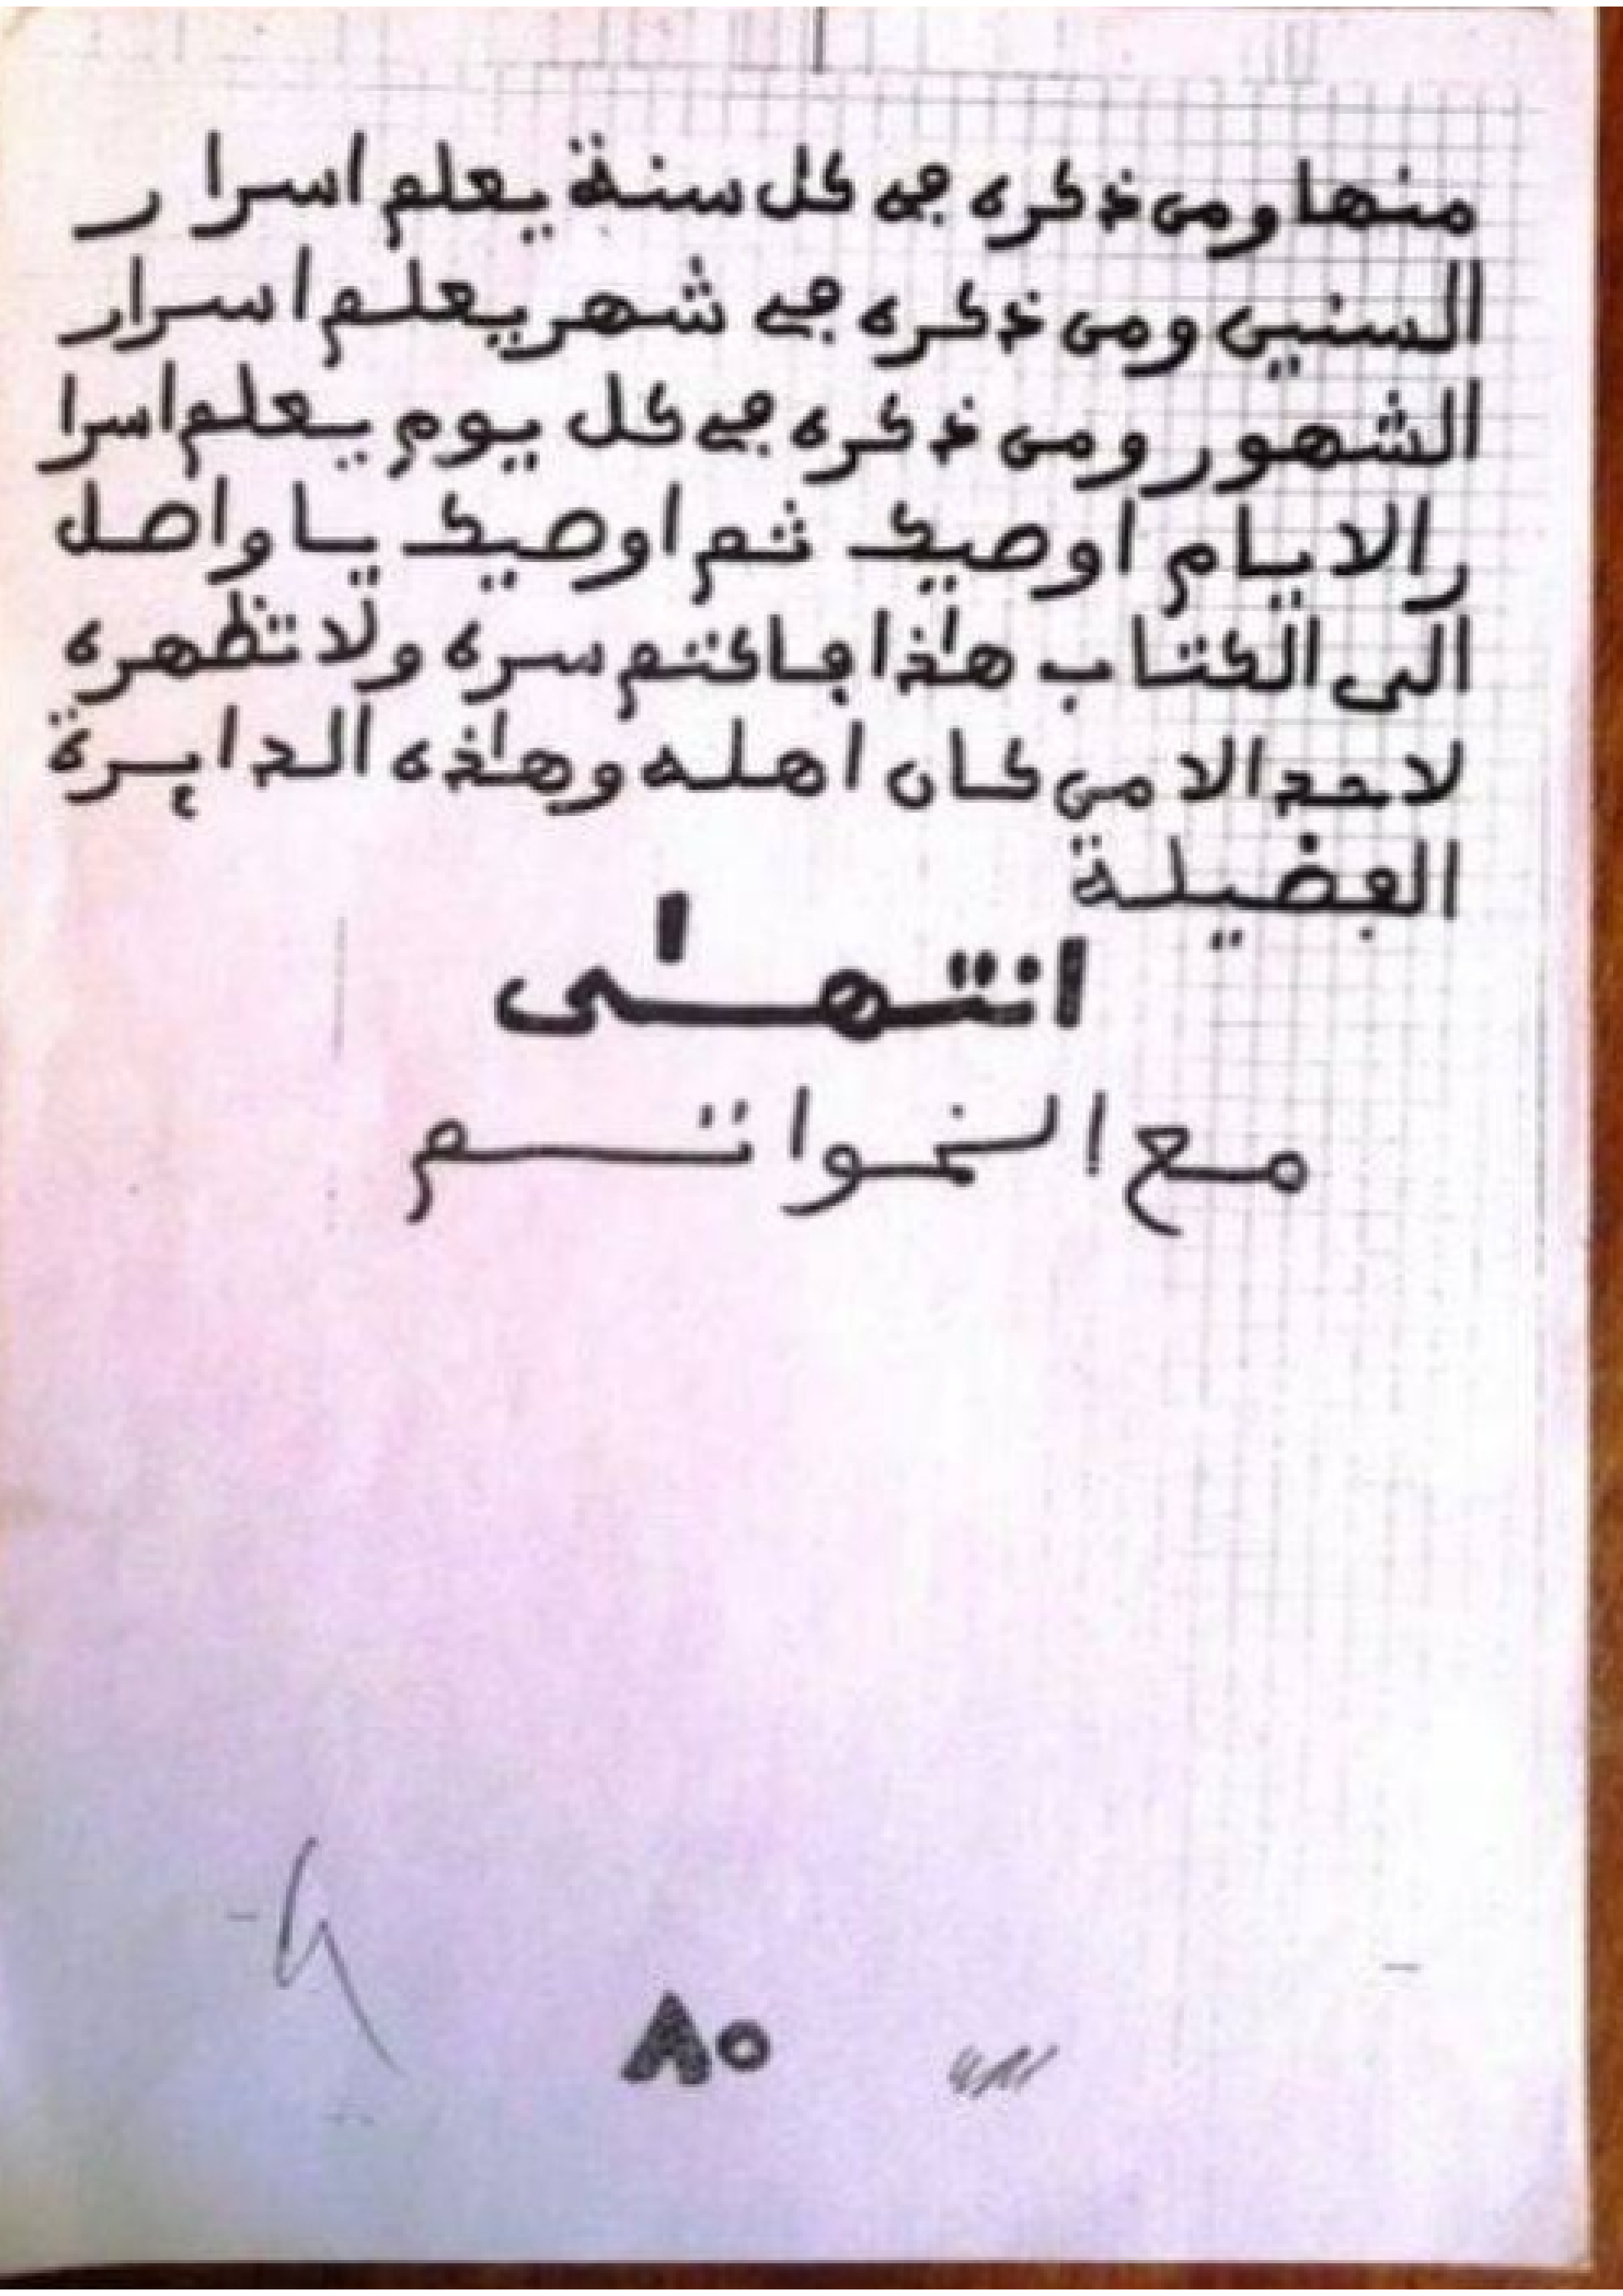 منها ومن ذكره في كل سنة يعلم اسرا ر
السنين ومن ذكره في شهر يعلم اسرار
الشهور ومن ذكره في كل يوم يعلم اسرا
رالايام اوصيك ثم اوصيك يا واصل
الى الكتاب هٰذا فاكتم سره ولا تظهره
لاحد الا من كان اهله وهٰذه الدايرة
الفضيلة
انتهٰى
مع الخواتم
٨٥